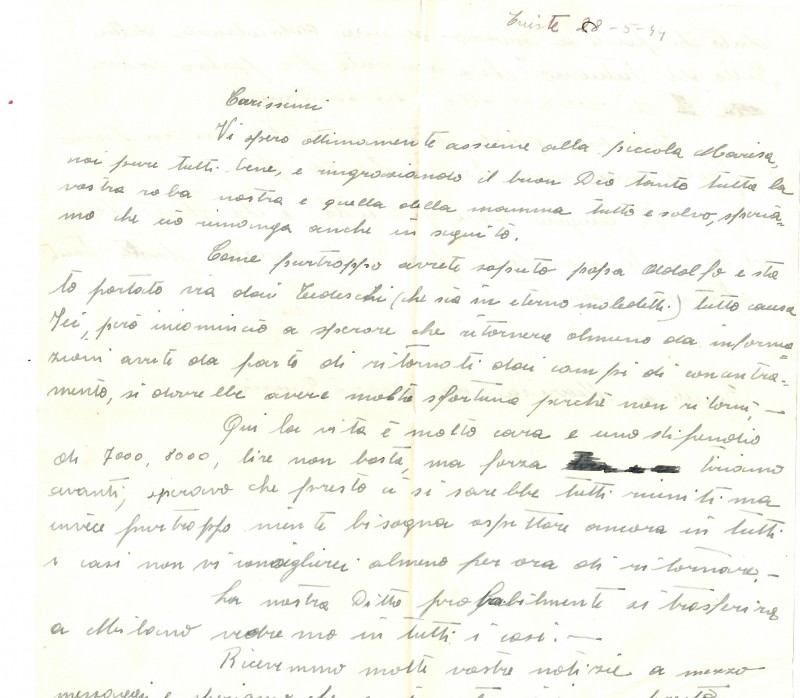 Trieste 28-5-44
Carissimi
Vi spero ottimamente assieme alla piccola Marisa,
noi pure tutti bene, e ringraziando il buon Dio tanto tutta la
vostra roba nostra e quella della mamma tutto e salvo, speria-
mo che ciò rimanga anche in seguito.
Come purtroppo avrete saputo papa Addolfo e sta
to portato via dai Tedeschi (che sia in eterno maledetti) tutto causa
però incomincio a sperare che ritornera almeno da informa=
zioni avute da parte di ritornati dai campi di concentra-
mento, si dovrebbe avere molta sfortuna perchè non ritorni,-
Qui la vita è molto cara e uno stipendio
di 7000, 8000, lire non basta, ma forza tiriamo
avanti, speravo che presto ci si sarebbe tutti riuniti ma
invece purtroppo niente bisogna aspettare ancora in tutti
i casi non vi consiglierei almeno per ora di ritornare.-
La nostra Ditta probabilmente si trasferira
a Milano vedremo in tutti i casi.-
Ricevemmo molte vostre notizie a mezzo
che